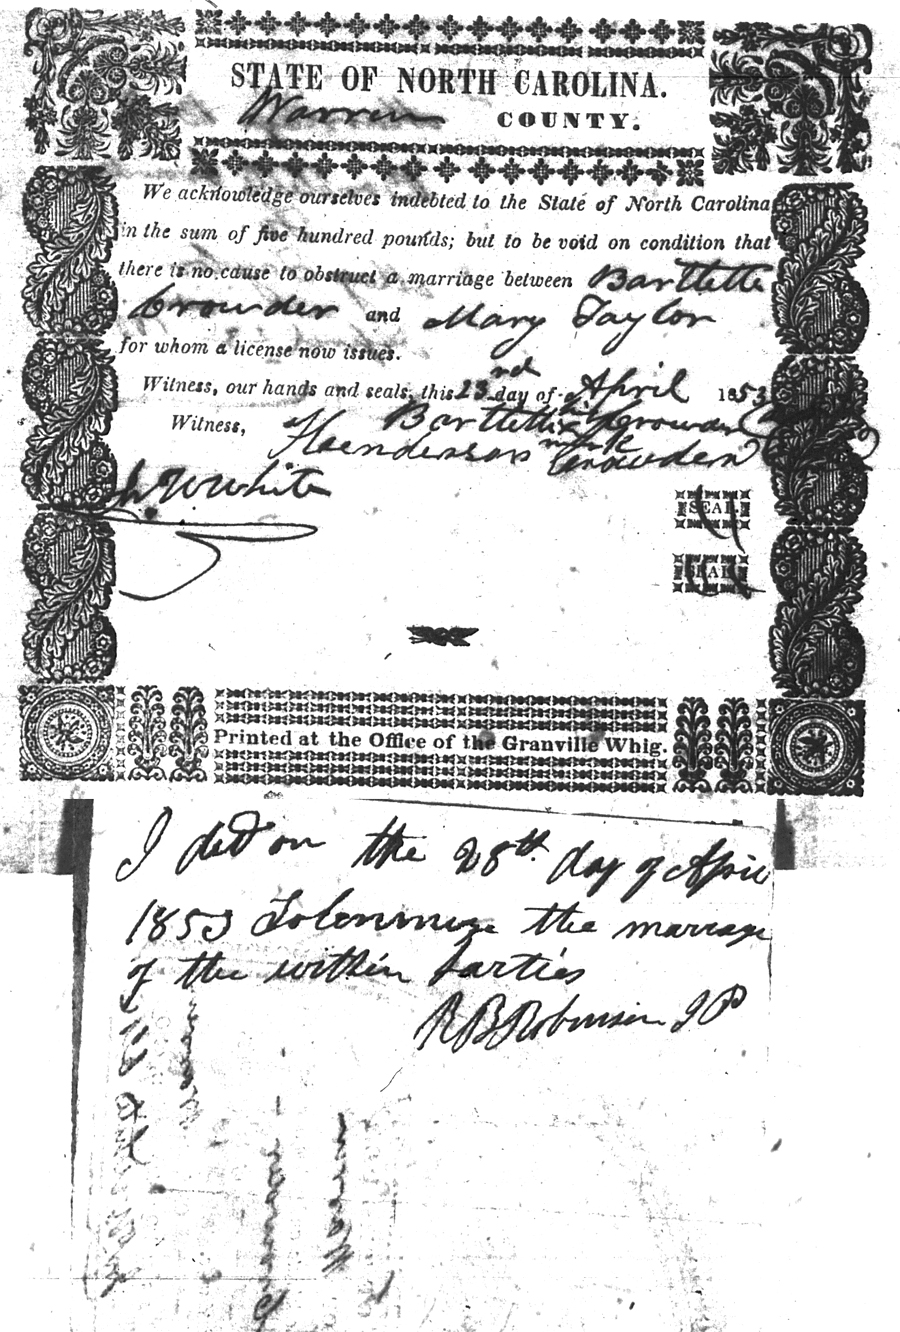 STATE OF NORTH CAROLINA.
Warren COUNTY.
We acknowledge ourselves indebted to the State of North Carolina
in the sum of five hundred pounds; but to be void on condition that
there is no cause to obstruct a marriage between Bartlette
Crowder and Mary Taylor
for whom a license now issues.
Witness, our hands and seals, this 23rd day of April 1853
Witness, Bartlette his Crowder
Henderson mark Crowder
White
SEAL
SEAL
Printed at the Office of the Granville Whig.
I did on the 28th day of April
1853 Solemnize the marriage
of the within parties
R B Robinson J P